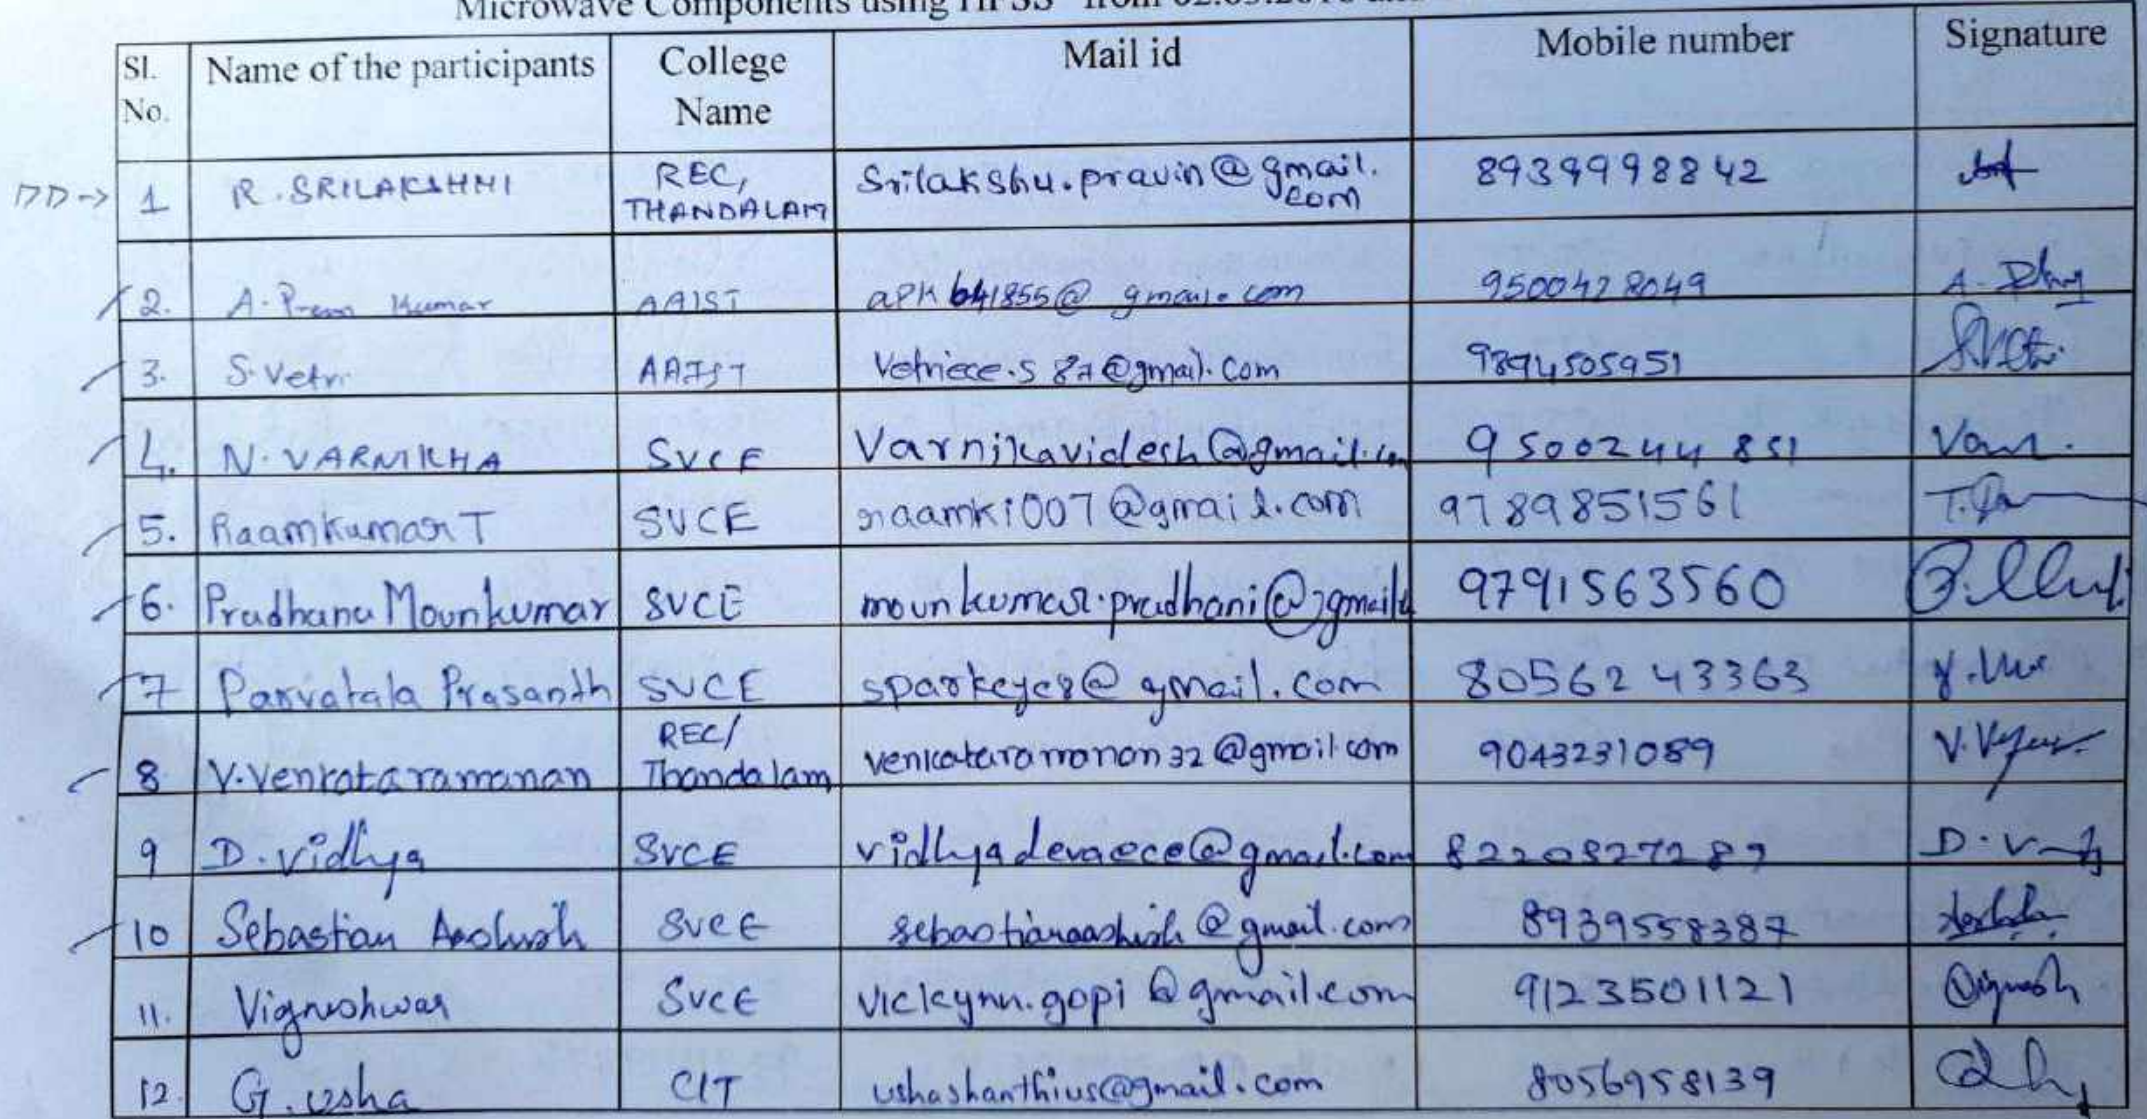 Microwave Components using HFSS" from 02.03.2018
Sl. No. Name of the participants College Name Mail id Mobile number Signature
DD→ 1 R. SRILAKSHMI REC, THANDALAM Srilakshu.pravin@gmail.com 8939998842
2. A. Prem Kumar AAIST apk641855@gmail.com 9500428049
3. S. Vetri AAIST Vetriece.s87@gmail.com 9894505951
4. N. VARNIKHA SVCE Varnikavidesh@gmail.com 9500244851
5. Raamkumar T SVCE raamki007@gmail.com 9789851561
6. Pradhana Mounkumar SVCE mounkumar.pradhani@gmail 9791563560
7 Parvatala Prasanth SVCE @gmail.com 8056243363
8 V. Venkataramanan REC/ Thandalam venkataramanan32@gmail.com 9043231089
9 D. Vidhya SVCE vidhyadevaece@gmail.com 8220827287
10 Sebastian Aashish SVCE sebastianaashish@gmail.com 8939558387
11. Vigneshwar SVCE vickynn.gopi@gmail.com 9123501121 Vignesh
12. G. Usha CIT ushashanthius@gmail.com 8056958139